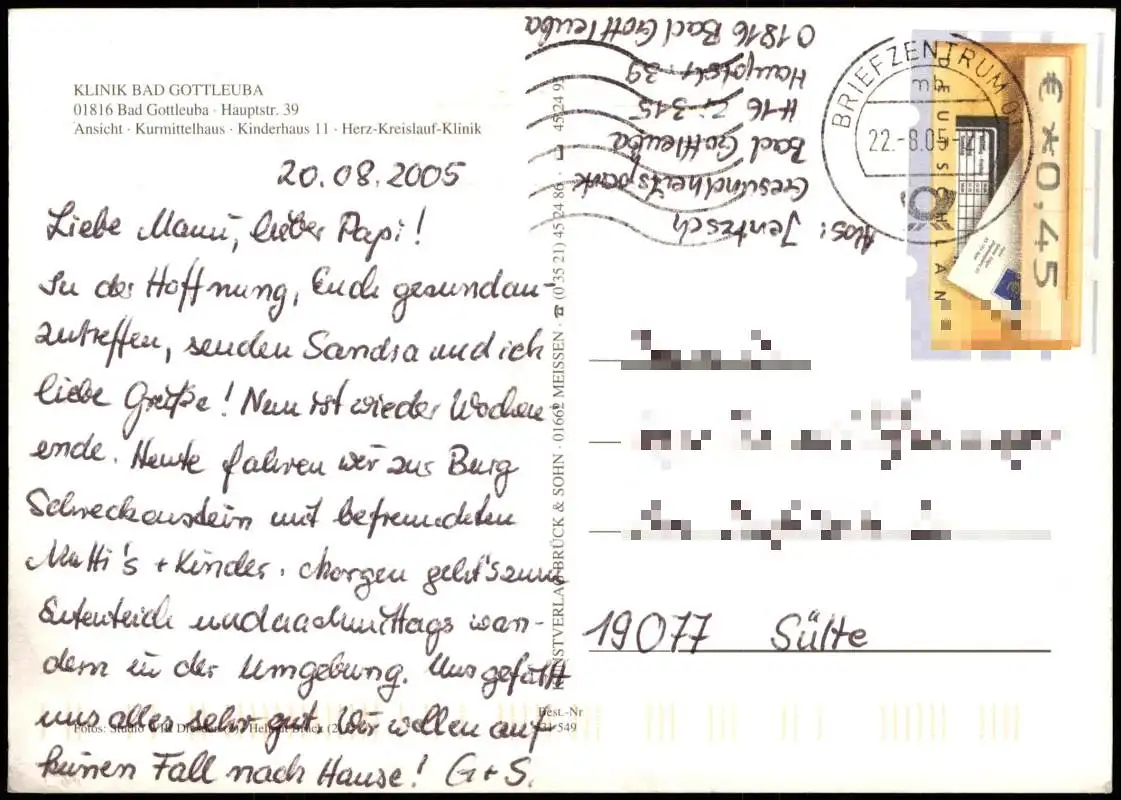 KLINIK BAD GOTTLEUBA
01816 Bad Gottleuba · Hauptstr. 39
Ansicht · Kurmittelhaus · Kinderhaus 11 · Herz-Kreislauf-Klinik
20.08.2005
Liebe Mami, lieber Papi!
In der Hoffnung, Euch gesundan-
zutreffen, senden Sandra und ich
liebe Grüße! Nun ist wieder Wochen
ende. Heute fahren wir zur Burg
Schreckenstein mit befreundeten
Mutti's + Kinder. Morgen geht's zum
Ententeich und nachmittags wan-
dern in der Umgebung. Uns gefällt
uns alles sehr gut. Wir wollen auf
keinen Fall nach Hause! G+S.
Fotos: Studio
Best.-Nr
KUNSTVERLAG BRÜCK & SOHN · 01662 MEISSEN · ☎ (0 35 21) 45 24 86 · 45 24 95
Abs: Jentzsch
Gesundheitspark
Bad Gottleuba
H16 Zi 315
Hauptstr. 39
01816 Bad Gottleuba
BRIEFZENTRUM 01
mb
22.-8.05-21
DEUTSCHLAND
€ *0,45
19077 Sülte